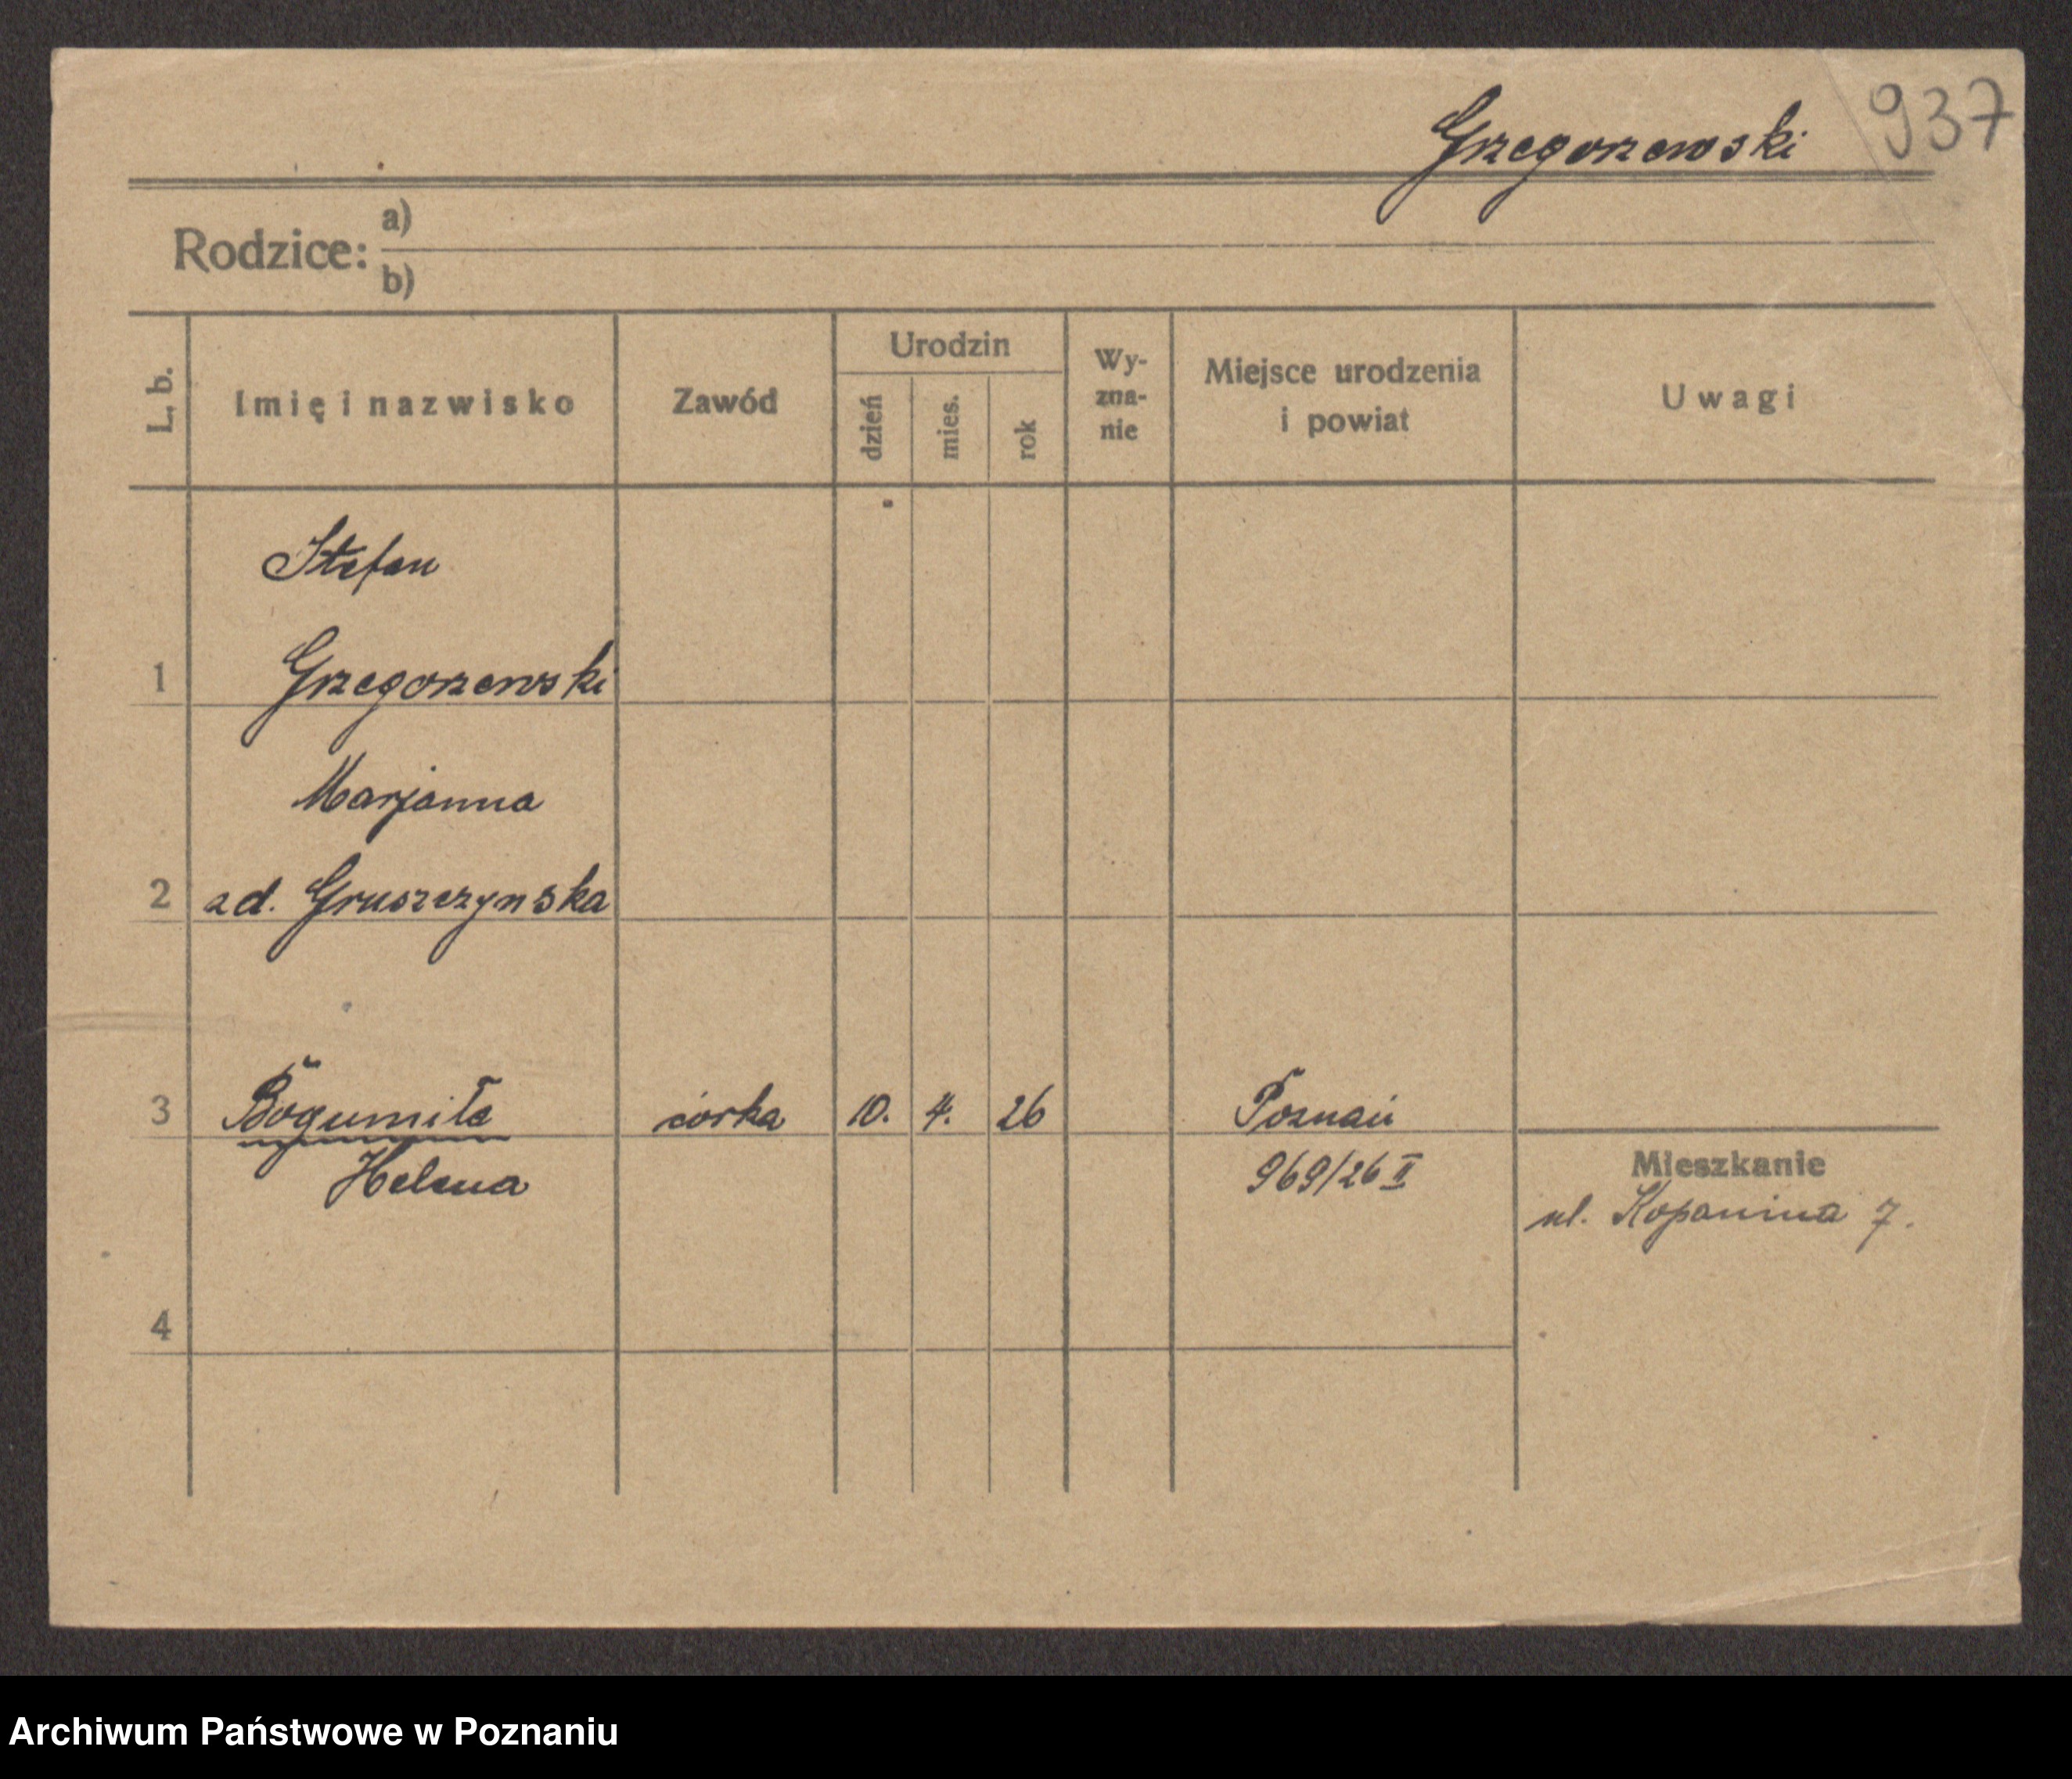 Grzegorzewski 937
Rodzice: a)
b)
L. b. Imię i nazwisko Zawód Urodzin dzień mies. rok Wy-zna-nie Miejsce urodzenia i powiat Uwagi
Stefan
1 Grzegorzewski
Marjanna
2 zd. Gruszczynska
3 Bogumiła córka 10. 4. 26 Poznań
Helena 969/26 II
Mieszkanie
ul. Kopanina 7.
4
Archiwum Państwowe w Poznaniu